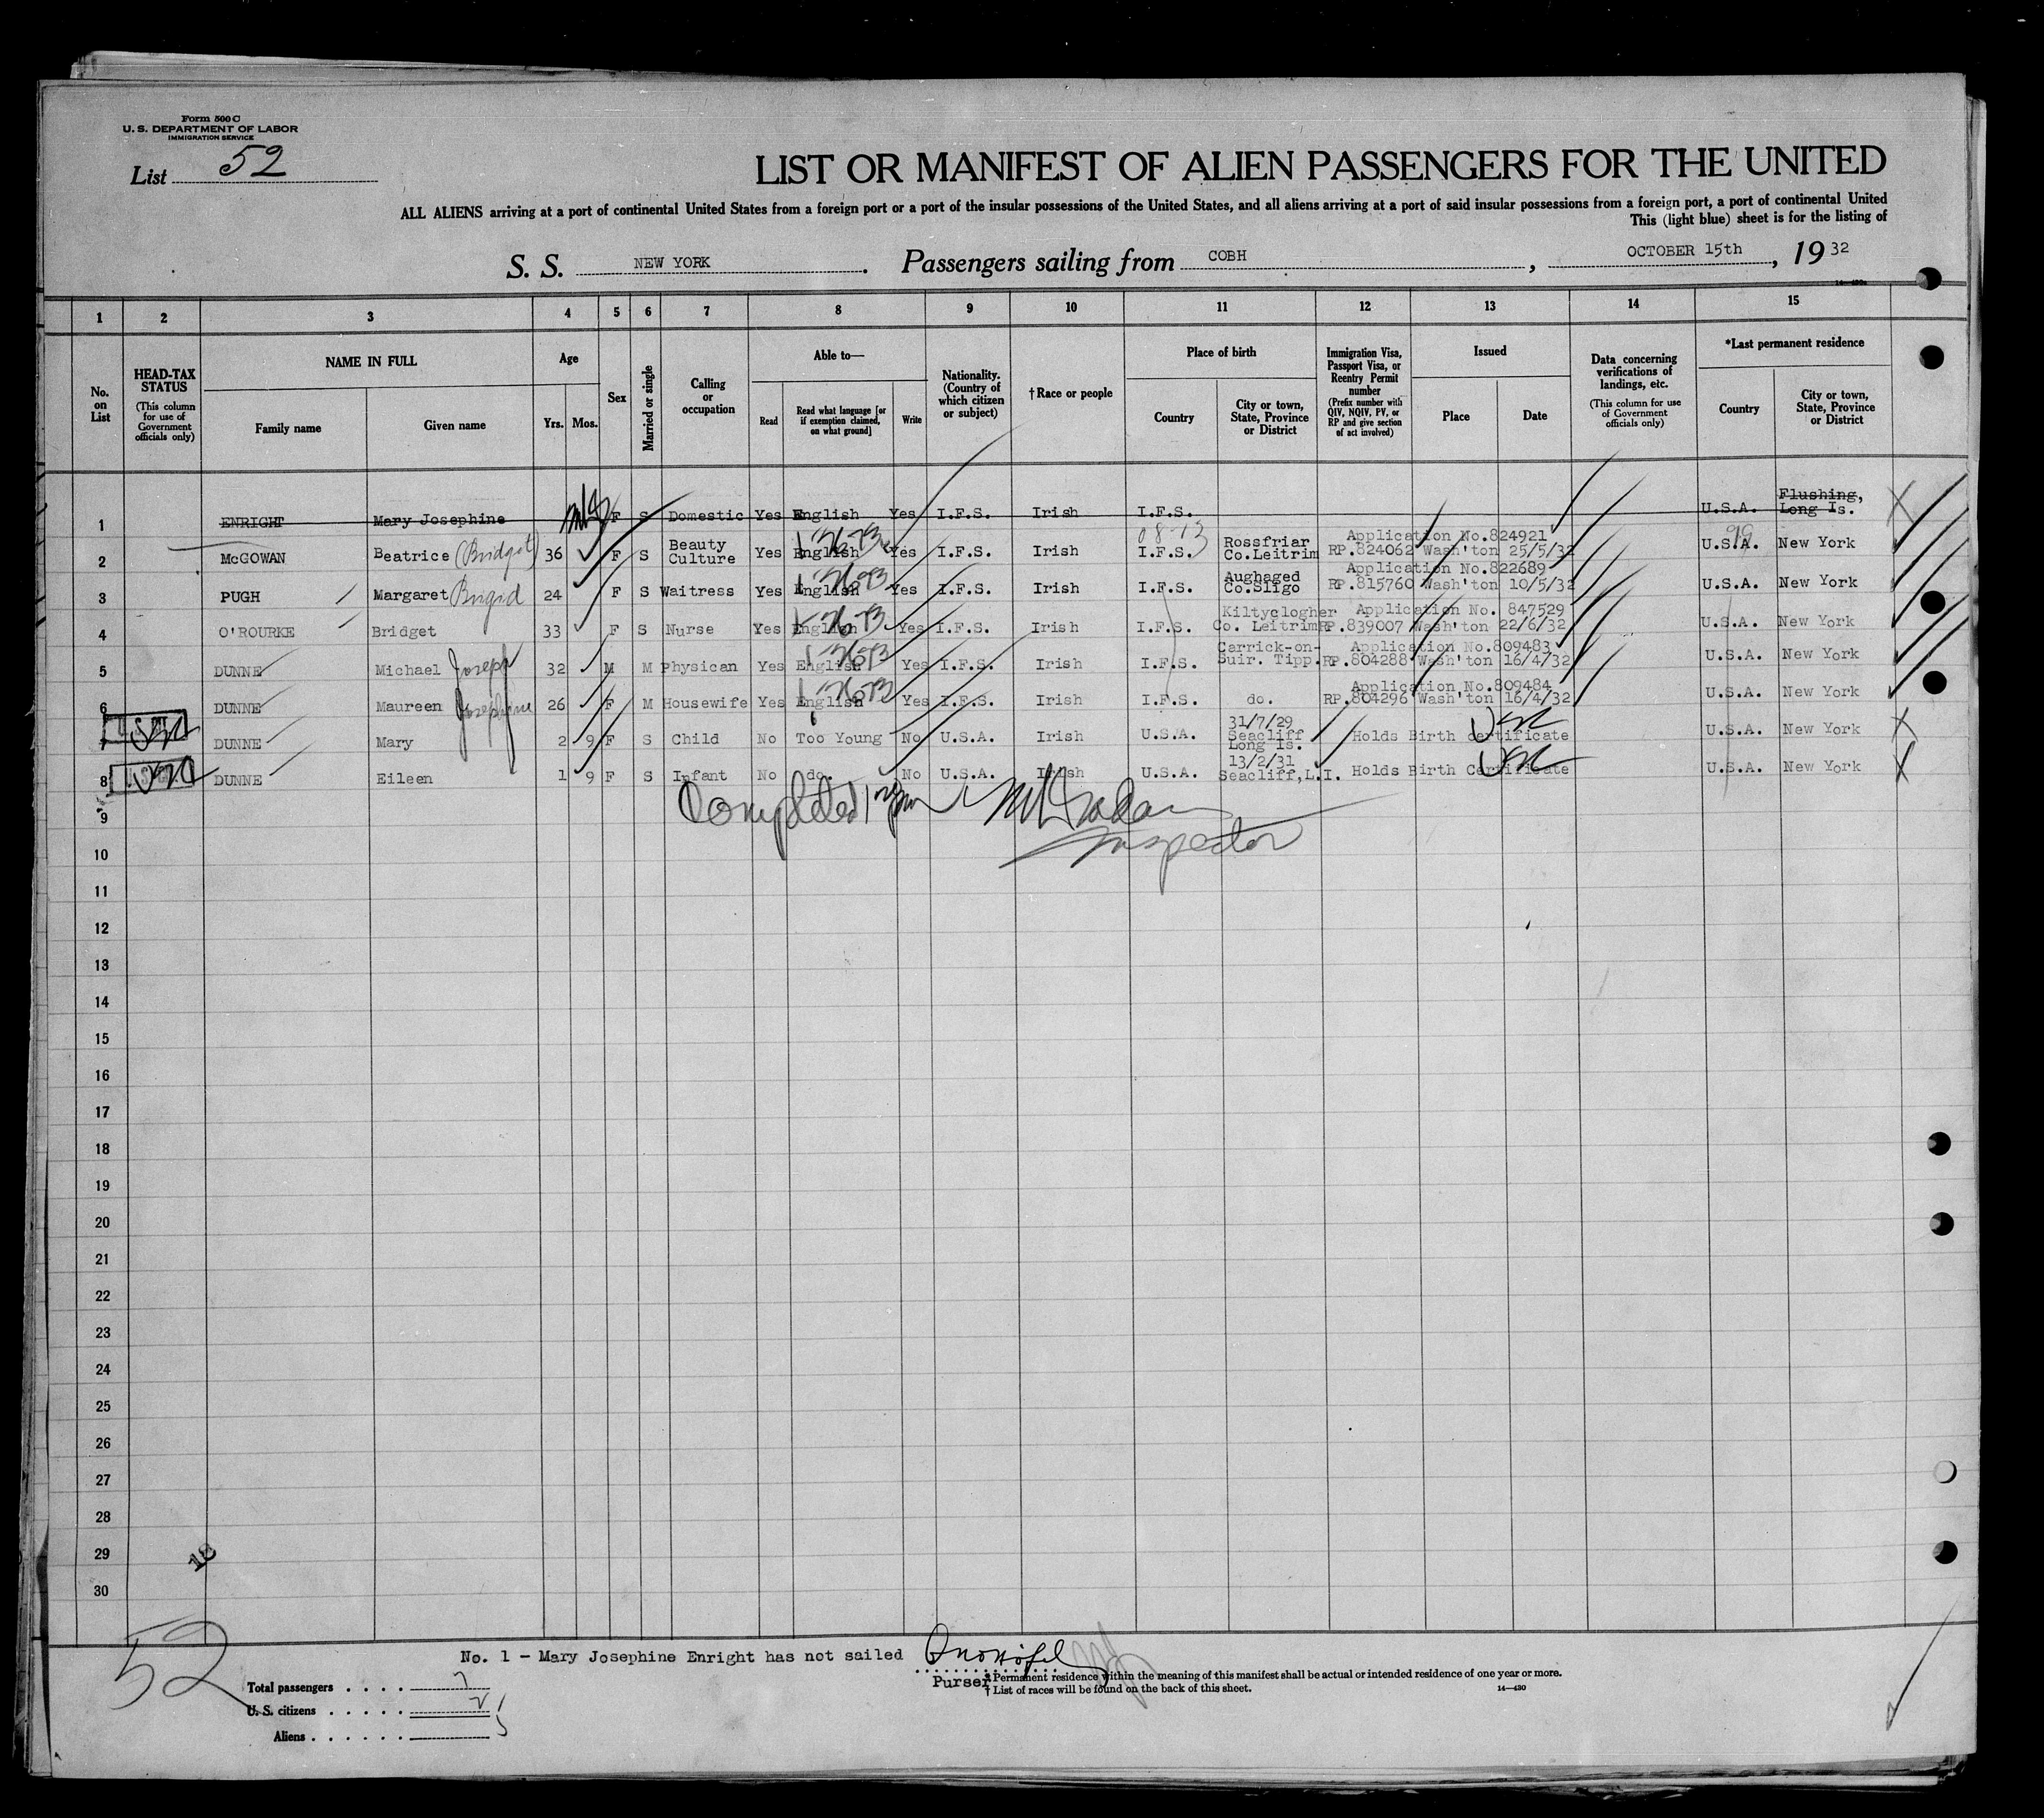 Form 500 C
U. S. DEPARTMENT OF LABOR
IMMIGRATION SERVICE
List 52
LIST OR MANIFEST OF ALIEN PASSENGERS FOR THE UNITED
ALL ALIENS arriving at a port of continental United States from a foreign port or a port of the insular possessions of the United States, and all aliens arriving at a port of said insular possessions from a foreign port, a port of continental United
This (light blue) sheet is for the listing of
S. S. NEW YORK. Passengers sailing from COBH, OCTOBER 15th, 19 32
14—430a
1 2 3 4 5 6 7 8 9 10 11 12 13 14 15
No. on List
HEAD-TAX STATUS (This column for use of Government officials only)
NAME IN FULL
Family name
Given name
Age
Yrs. Mos.
Sex
Married or single
Calling or occupation
Able to—
Read
Read what language [or if exemption claimed, on what ground]
Write
Nationality. (Country of which citizen or subject)
† Race or people
Place of birth
Country
City or town, State, Province or District
Immigration Visa, Passport Visa, or Reentry Permit number (Prefix number with QIV, NQIV, PV, or RP and give section of act involved)
Issued
Place
Date
Data concerning verifications of landings, etc. (This column for use of Government officials only)
*Last permanent residence
Country
City or town, State, Province or District
1 ENRIGHT Mary Josephine F S Domestic Yes English Yes I.F.S. Irish I.F.S. U.S.A. Flushing, Long Is.
2 McGOWAN Beatrice (Bridget) 36 F S Beauty Culture Yes English Yes I.F.S. Irish I.F.S. Rossfriar Co.Leitrim Application No.824921 RP.824062 Wash'ton 25/5/32 U.S.A. New York
3 PUGH Margaret Brigid 24 F S Waitress Yes English Yes I.F.S. Irish I.F.S. Aughaged Co.Sligo Application No.822689 RP.815760 Wash'ton 10/5/32 U.S.A. New York
4 O'ROURKE Bridget 33 F S Nurse Yes English Yes I.F.S. Irish I.F.S. Kiltyclogher Co. Leitrim Application No. 847529 RP.839007 Wash'ton 22/6/32 U.S.A. New York
5 DUNNE Michael Joseph 32 M M Physican Yes English Yes I.F.S. Irish I.F.S. Carrick-on-Suir. Tipp. Application No.809483 RP.804288 Wash'ton 16/4/32 U.S.A. New York
6 DUNNE Maureen Josephine 26 F M Housewife Yes English Yes I.F.S. Irish I.F.S. do. Application No.809484 RP.804296 Wash'ton 16/4/32 U.S.A. New York
7 DUNNE Mary 2 9 F S Child No Too Young No U.S.A. Irish U.S.A. 31/7/29 Seacliff Long Is. Holds Birth certificate U.S.A. New York
8 DUNNE Eileen 1 9 F S Infant No do. No U.S.A. Irish U.S.A. 13/2/31 Seacliff, L.I. Holds Birth Certificate U.S.A. New York
Completed
Inspector
9
10
11
12
13
14
15
16
17
18
19
20
21
22
23
24
25
26
27
28
29
30
18
52
No. 1 - Mary Josephine Enright has not sailed
Purser
Total passengers . . . . 7
U. S. citizens . . . . . 2
Aliens . . . . . . 5
* Permanent residence within the meaning of this manifest shall be actual or intended residence of one year or more.
† List of races will be found on the back of this sheet.
14—430